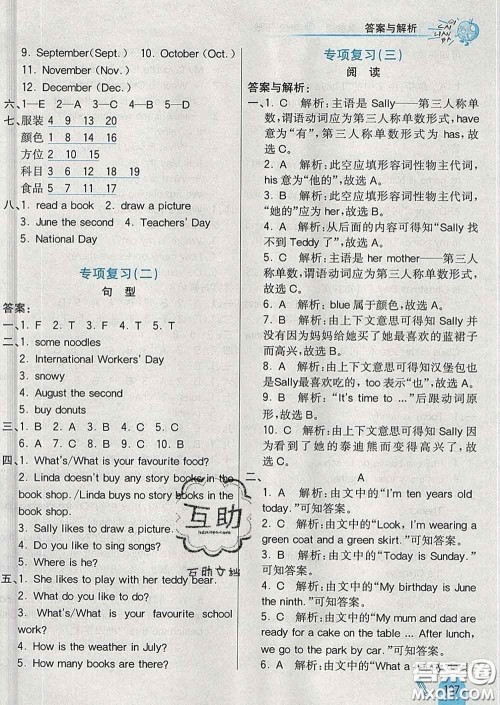 答案与解析
9. September(Sept.) 10. October(Oct.)
11. November(Nov.)
12. December(Dec.)
六、1—E 2—A 3—D 4—C 5—B
七、服装 4 9 13 20
颜色 1 8 14 17
方位 2 10 15 16
科目 3 6 12 18 19
食品 5 7 11 17
八、1. read a book 2. draw a picture
3. June the second 4. Teachers' Day
5. National Day
专项复习(二)
句 型
答案:
一、1. F 2. T 3. F 4. T 5. T
二、1. some noodles
2. International Workers' Day
3. snowy
4. August the second
5. buy donuts
三、1. C 2. B 3. C 4. A 5. C
6. B 7. C 8. A 9. C 10. B
四、1. What's/What is your favourite food?
2. Linda doesn't buy any story books in the
book shop. /Linda buys no story books in the
book shop.
3. Sally likes to draw a picture.
4. Do you like to sing songs?
5. Where is he?
五、1. She likes to play with her teddy bear.
2. What do you like to do?
3. What's/What is your favourite school
work?
4. How is the weather in July?
5. How many books are there?
专项复习(三)
阅 读
答案与解析:
一、1. C 解析:主语是 Sally——第三人称单
数,谓语动词应为第三人称单数形式,have
意为“有”,第三人称单数形式为 has,故
选 C。
2. A 解析:此空应填形容词性物主代词,
his 意为“他的”,故选 A。
3. B 解析:此空应填形容词性物主代词,
“她的”应为 her,故选 B。
4. A 解析:从后面的内容可得知“Sally 找
不到 Teddy 了”,故选 A。
5. C 解析:主语是 her mother——第三人称
单数,谓语动词应为第三人称单数形式,故
选 C。
6. A 解析:blue 属于颜色,故选 A。
7. B 解析:由上下文意思可得知 Sally 并
没有因为妈妈给她买了她最喜欢的蓝裙子
而高兴,故选 B。
8. A 解析:由上下文意思可得知在汉堡包
也是Sally最喜欢的, too 表示“也”,故选 A。
9. B 解析:“It's time to ...”后跟动词原
形,故选 B。
10. C 解析:由上下文意思可得知 Sally 因
为看到了她的泰迪熊而变得高兴了,故
选 C。
二、 A
1. A 解析:由文中的“I'm ten years old
today.”可知答案。
2. C 解析:由文中的“Look, I'm wearing a
green coat and a green skirt.”可知答案。
3. B 解析:由文中的“Today is Sunday.”
可知答案。
4. C 解析:由文中的“My birthday is June
the ninth.”可知答案。
5. A 解析:由文中的“My mum and dad
are ready for a cake on the table ... After lunch,
we go to the park by car.”可知答案。
6. A 解析:由文中的“What a
互助
互助文档
答案圈
MXQE.COM
127